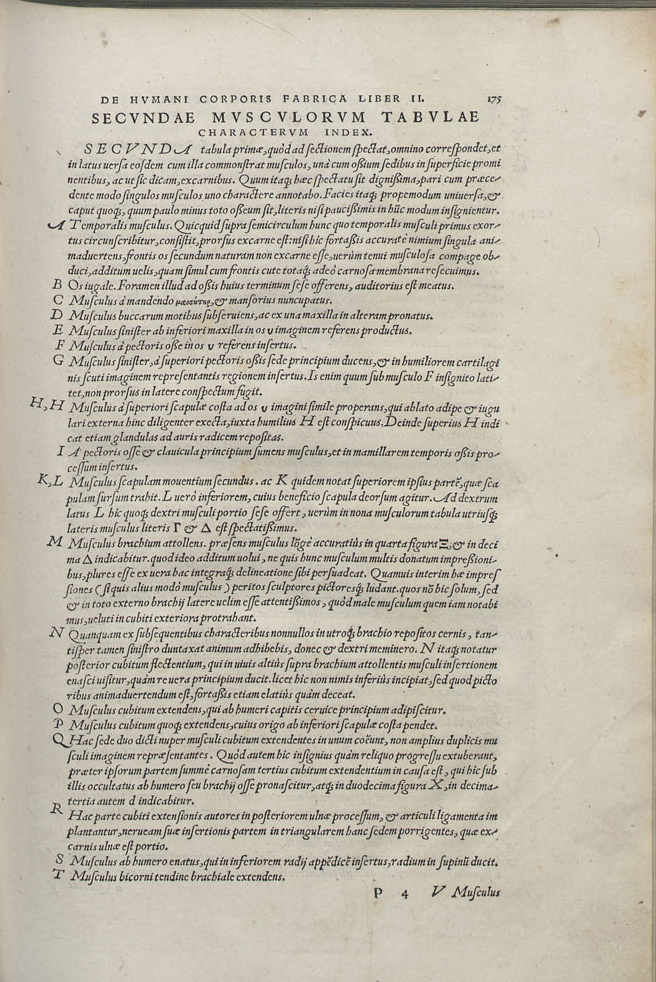 DE HVMANI CORPORIS FABRICA LIBER II. 175
SECVNDAE MVSCVLORVM TABVLAE
CHARACTERVM INDEX.
SECVNDA tabula primæ, quòd ad sectionem spectat, omnino correspondet, et
in latus uersa eosdem cum illa commonstrat musculos, unà cum oßium sedibus in superficie promi
nentibus, ac ut sic dicam, excarnibus. Quum itaq; hæc spectatu sit dignißima, pari cum præce-
dente modo singulos musculos uno charactere annotabo. Facies itaq; propemodum uniuersa, &
caput quoq;, quum paulo minus toto oßeum sit, literis nisi paucißimis in hũc modum insignientur.
A Temporalis musculus. Quicquid supra semicirculum hunc quo temporalis musculi primus exor-
tus circunscribitur, consistit, prorsus excarne est: nisi hîc fortaßis accuratè nimium singula ani-
maduertens, frontis os secundum naturam non excarne esse, uerùm tenui musculosa compage ob-
duci, additum uelis, quam simul cum frontis cute totaq; adeò carnosa membrana resecuimus.
B Os iugale. Foramen illud ad oßis huius terminum sese offerens, auditorius est meatus.
C Musculus à mandendo μασσητὴρ, & mansorius nuncupatus.
D Musculus buccarum motibus subseruiens, ac ex una maxilla in alteram pronatus.
E Musculus sinister ab inferiori maxilla in os υ imaginem referens productus.
F Musculus à pectoris osse in os υ referens insertus.
G Musculus sinister, à superiori pectoris oßis sede principium ducens, & in humiliorem cartilagi
nis scuti imaginem repræsentantis regionem insertus. Is enim quum sub musculo F insignito lati-
tet, non prorsus in latere conspectum fugit.
H, H Musculus à superiori scapulæ costa ad os υ imagini simile properans, qui ablato adipe & iugu
lari externa hinc diligenter execta, iuxta humilius H est conspicuus. Deinde superius H indi
cat etiam glandulas ad auris radicem repositas.
I A pectoris osse & clauicula principium sumens musculus, et in mamillarem temporis oßis pro-
cessum insertus.
K, L Musculus scapulam mouentium secundus. ac K quidem notat superiorem ipsius partẽ, quæ sca
pulam sursum trahit. L uerò inferiorem, cuius beneficio scapula deorsum agitur. Ad dextrum
latus L hîc quoq; dextri musculi portio sese offert, uerùm in nona musculorum tabula utriusq;
lateris musculus literis Γ & Δ est spectatißimus.
M Musculus brachium attollens. præsens musculus lõgè accuratiùs in quarta figura Ξ, & in deci
ma Δ indicabitur. quod ideo additum uolui, ne quis hunc musculum multis donatum impreßioni-
bus, plures esse ex uera hac integraq; delineatione sibi persuadeat. Quamuis interim hæ impres
siones (si quis alius modò musculus) peritos sculptores pictoresq; ludant. quos nõ hîc solum, sed
& in toto externo brachij latere uelim esse attentißimos, quòd male musculum quem iam notabi
mus, ueluti in cubiti exteriora protrahant.
N Quanquam ex subsequentibus characteribus nonnullos in utroq; brachio repositos cernis, tan-
tisper tamen sinistro duntaxat animum adhibebis, donec & dextri meminero. N itaq; notatur
posterior cubitum flectentium, qui in uiuis altiùs supra brachium attollentis musculi insertionem
enasci uisitur, quàm re uera principium ducit. licet hîc non nimis inferiùs incipiat, sed quod picto
ribus animaduertendum est, fortaßis etiam elatiùs quàm deceat.
O Musculus cubitum extendens, qui ab humeri capitis ceruice principium adipiscitur.
P Musculus cubitum quoq; extendens, cuius origo ab inferiori scapulæ costa pendet.
Q Hac sede duo dicti nuper musculi cubitum extendentes in unum coëunt, non amplius duplicis mu
sculi imaginem repræsentantes. Quòd autem hîc insignius quàm reliquo progressu extuberant,
præter ipsorum partem summè carnosam tertius cubitum extendentium in causa est, qui hîc sub
illis occultatus ab humero seu brachij osse pronascitur, atq; in duodecima figura X, in decima-
tertia autem d indicabitur.
R Hac parte cubiti extensionis autores in posteriorem ulnæ processum, & articuli ligamenta im
plantantur, nerueam suæ insertionis partem in triangularem hanc sedem porrigentes, quæ ex-
carnis ulnæ est portio.
S Musculus ab humero enatus, qui in inferiorem radij appẽdicẽ insertus, radium in supinũ ducit.
T Musculus bicorni tendine brachiale extendens.
P 4 V Musculus